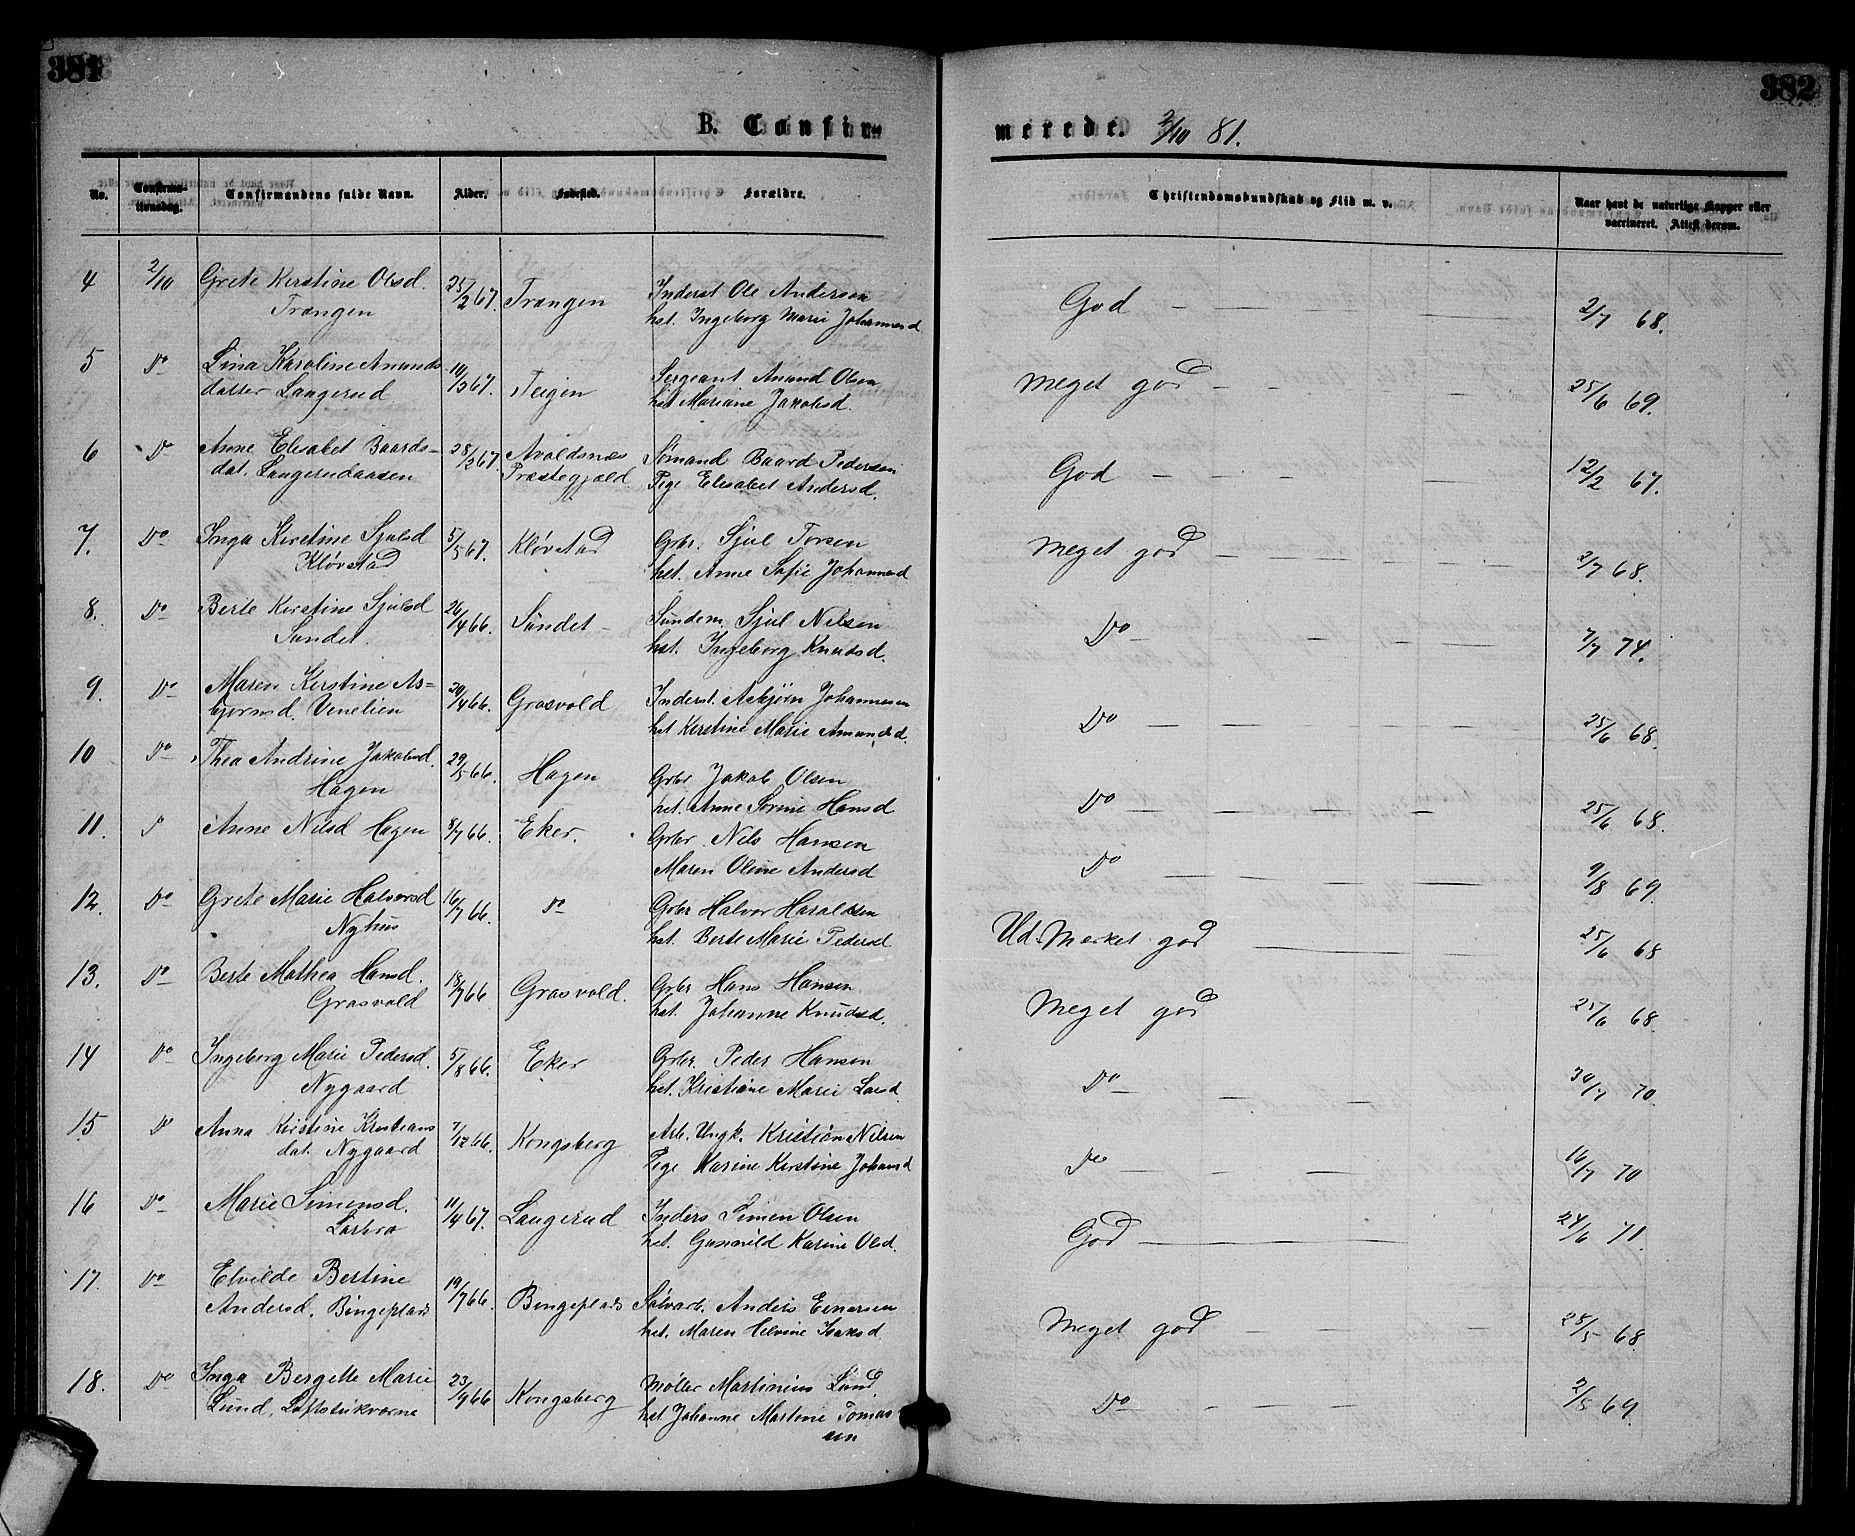 381
382
B. Confir
merede. 2/10 81.
No.
Confirma-
tionsdag.
Confirmandens fulde Navn.
Alder.
Fødested.
Forældre.
Christendomskundskab og Flid m. v.
Naar havt de naturlige Kopper eller
vaccineret. Attest derom.
4 2/10 Grete Kirstine Olsd. 25/2 67. Trangen Inderst Ole Andersen God 2/7 68.
Trangen hst. Ingeborg Marie Johannesd
5 Do Lina Karoline Anunds 10/3 67. Teigen Sergeant Anund Olsen Meget god 25/6 69.
datter Langerud hst Mariane Jakobsd.
6 Do Anne Elisabet Baards- 28/2 67. Avaldsnæs Sømand Baard Pedersen God 12/2 67.
dat. Langerudaasen Præstegjæld Pige Elisabet Andersd.
7. Do Inga Kirstine Sjulsd 5/5 67. Kløvstad Grbr. Sjul Torsen Meget god 2/7 68.
Kløvstad hst. Anne Sofie Johannesd
8. Do Berte Kirstine Sjulsd 26/4 66. Sundet Sundm. Sjul Nilsen Do 7/7 74.
Sundet. hst. Ingeborg Knudsd.
9. Do Maren Kirstine As- 20/4 66. Grosvold Inderst. Asbjørn Johannesen Do 25/6 68.
bjørnsd. Venelien hst Kirstine Marie Amundsd.
10 Do Thea Andrine Jakobsd. 29/5 66. Hagen Grbr Jakob Olsen Do 25/6 68.
Hagen hst. Anne Sørine Hansd
11. Do Anne Nilsd Hagen 8/7 66. Eker. Grbr. Nils Hansen Do 9/8 69.
Maren Oline Andersd
12. Do Grete Marie Halvorsd 16/7 66. Do Grbr Halvor Haraldsen Ud-Merket god 25/6 68
Nyhus hst. Berte Marie Pedersd
13. Do Berte Mathea Hansd. 18/7 66 Grosvold. Grbr Hans Hansen Meget god 25/6 68
Grosvold hst. Johanne Knudsd.
14 Do Ingeborg Marie Pedersd. 5/8 66. Eker Grbr. Peder Hansen Do 30/7 70.
Nygaard hst. Kristiane Marie Larsd.
15 Do Anna Kirstine Kristians 7/12 66. Kongsberg Arb. Ungk. Kristian Nilsen Do 16/7 70
dat. Nygaard Pige Karine Kirstine Johansd
16 Do Marie Simensd. 11/4 67. Langerud Inders Simen Olsen God 24/6 71.
Larbro hst. Gunnild Karine Olsd.
17. Do Elvilde Bertine 19/7 66. Bingeplads Sølvarb. Anders Einersen Meget god 28/5 68.
Andersd. Bingeplads hst. Maren Helvine Isaksd
18. Do Inga Bergitte Marie 23/9 66 Kongsberg Møller Martinius Lund. Do 2/5 69.
Lund, Loftstukværne hst Johanne Martine Tomas
sen